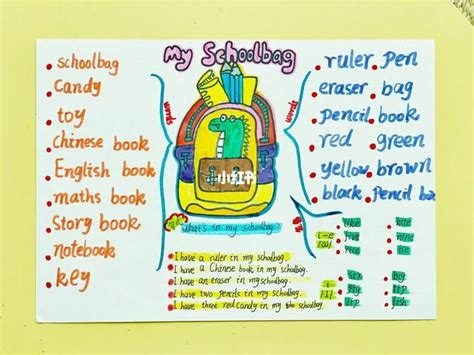 My Schoolbag
schoolbag
Candy
toy
Chinese book
English book
maths book
Story book
notebook
key
words
words
ruler pen
eraser bag
pencil book
red green
yellow brown
black pencil bo
小红书
What's in my schoolbag?
I have a ruler in my schoolbag.
I have a Chinese book in my schoolbag.
I have an eraser in my schoolbag.
I have two pencils in my schoolbag.
I have three red Candy in my schoolbag
i-e
/ai/
like
kite
five
nine
rice
i
/ɪ/
six
big
pig
lip
fish